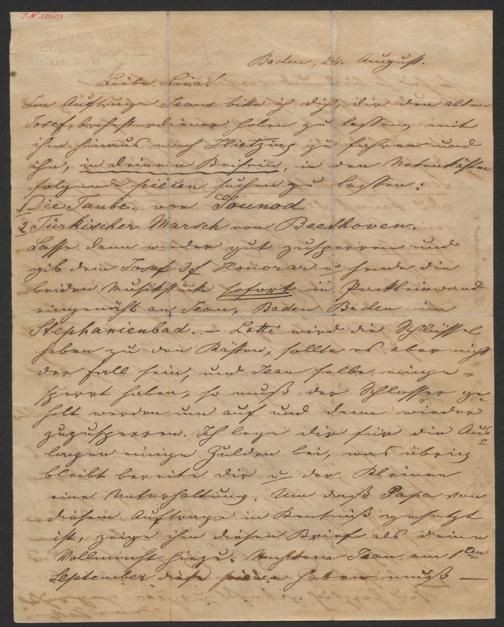 Baden, 24. August.
Liebe
Im Auftrage Jeans bitte ich dich, dir den alten
Josef, holen zu lassen, mit
ihm hinaus nach Hietzing zu fahren und
ihn, in deinem Beisein, in den Notenkästen
folgende piècen suchen zu lassen:
1 Die Taube, von Gounod
2 Türkischer Marsch von Beethoven.
Lasse dann wieder gut zusperren und
gib dem Josef 3 f Honorar u sende die
beiden Musikstücke sofort in
an Jean, Baden Baden im
Stephanienbad. – Letti wird die Schlüssel
haben zu den Kästen, sollte es aber nicht
der Fall sein, und Jean selbe
haben, so muß der Schlosser ge-
holt werden um auf und dann wieder
zuzusperren. Ich lege dir für die Aus-
lagen einige Gulden bei, was übrig
bleibt bereite dir u der Kleinen
eine Unterhaltung. Um daß Papa von
diesem Auftrage in Kenntniß gesetzt
ist, zeige ihm diesen Brief als deine
Vollmacht hiezu. Jean am 1ten
September diese piècen haben muß —